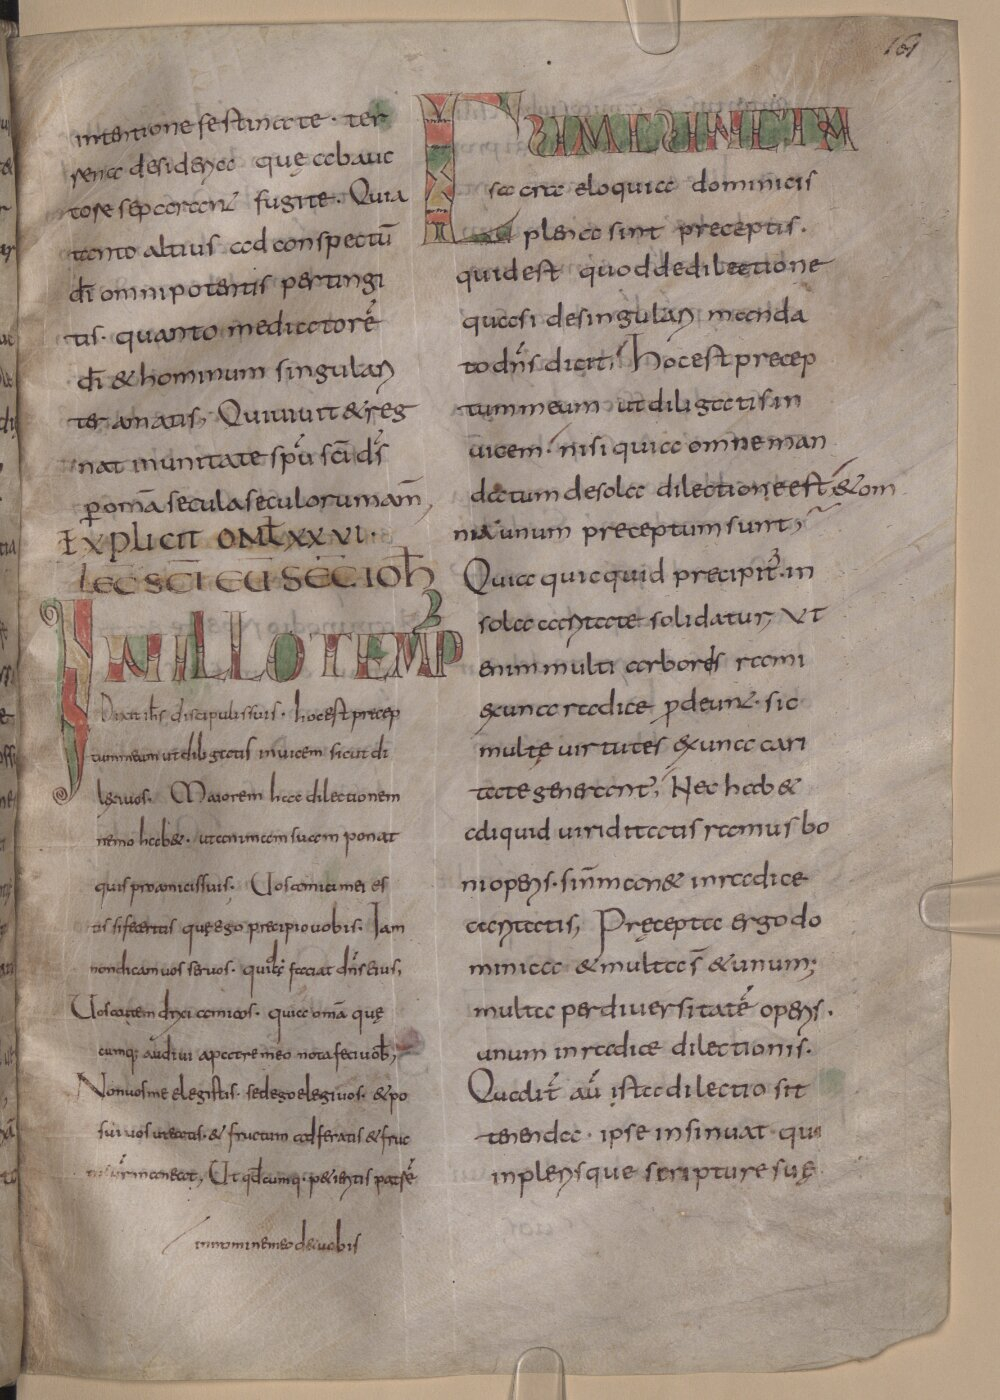 161
intentione festinate · ter
rena desideria quę ab auc
tore separant᷒ fugite · Quia
tanto altius ad conspectū
dī omnipotentis pertingi
tis · quanto mediatorē
dī & hominum singulari
ter amatis, Qui uiuit & reg
nat in unitate spū scī ds
ꝑ omā secula seculorum am̄,
Explicit OML XXXVI·
LEC SC̄I EŪ SEC̄ IOH̄
IN ILLO TEMP
Dixit ihs discipulis suis · hoc est precep
tum meum ut diligatis inuicem sicut di
lexi uos · Maiorem hac dilectionem
nemo hab& · ut animam suam ponat
quis pro amicis suis · Uos amici mei es
tis si feceritis quę ego precipio uobis · Iam
non dicam uos seruos · quia faciat dn̄s eius,
Uos autem dixi amicos · quia omā quę
cumq; audiui a patre meo nota feci uob̄,
Non uos me elegistis · sed ego elegi uos · & po
sui uos ut eatis · & fructum adferatis & fruc
tus ur̄ maneat, Ut qd̄cumq · petieritis patrē
in nomine meo det uobis
CUM CUNCTA
sacra eloquia dominicis
plena sint preceptis ·
quid est quod de dilectione
quasi de singulari manda
to dn̄s dicit, Hoc est precep
tum meum ut diligatis in
uicem · nisi quia omne man
datum de sola dilectione est & om
nia unum preceptum sunt,
Quia quicquid precipit᷒ · in
sola caritate solidatur, Vt
enim multi arboris rami
ex una radice ꝓdeunt᷒ · sic
multę uirtutes ex una cari
tate generant᷒, Nec hab&
aliquid uiriditatis ramus bo
ni operis · si n̄ man& in radice
caritatis, Pręcepta ergo do
minica & multa s̄ & unum;
multa per diuersitatē operis ·
unum in radice dilectionis ·
Qualit᷒ aū ista dilectio sit
tenenda · ipse insinuat · qui
in plerisque scripture suę